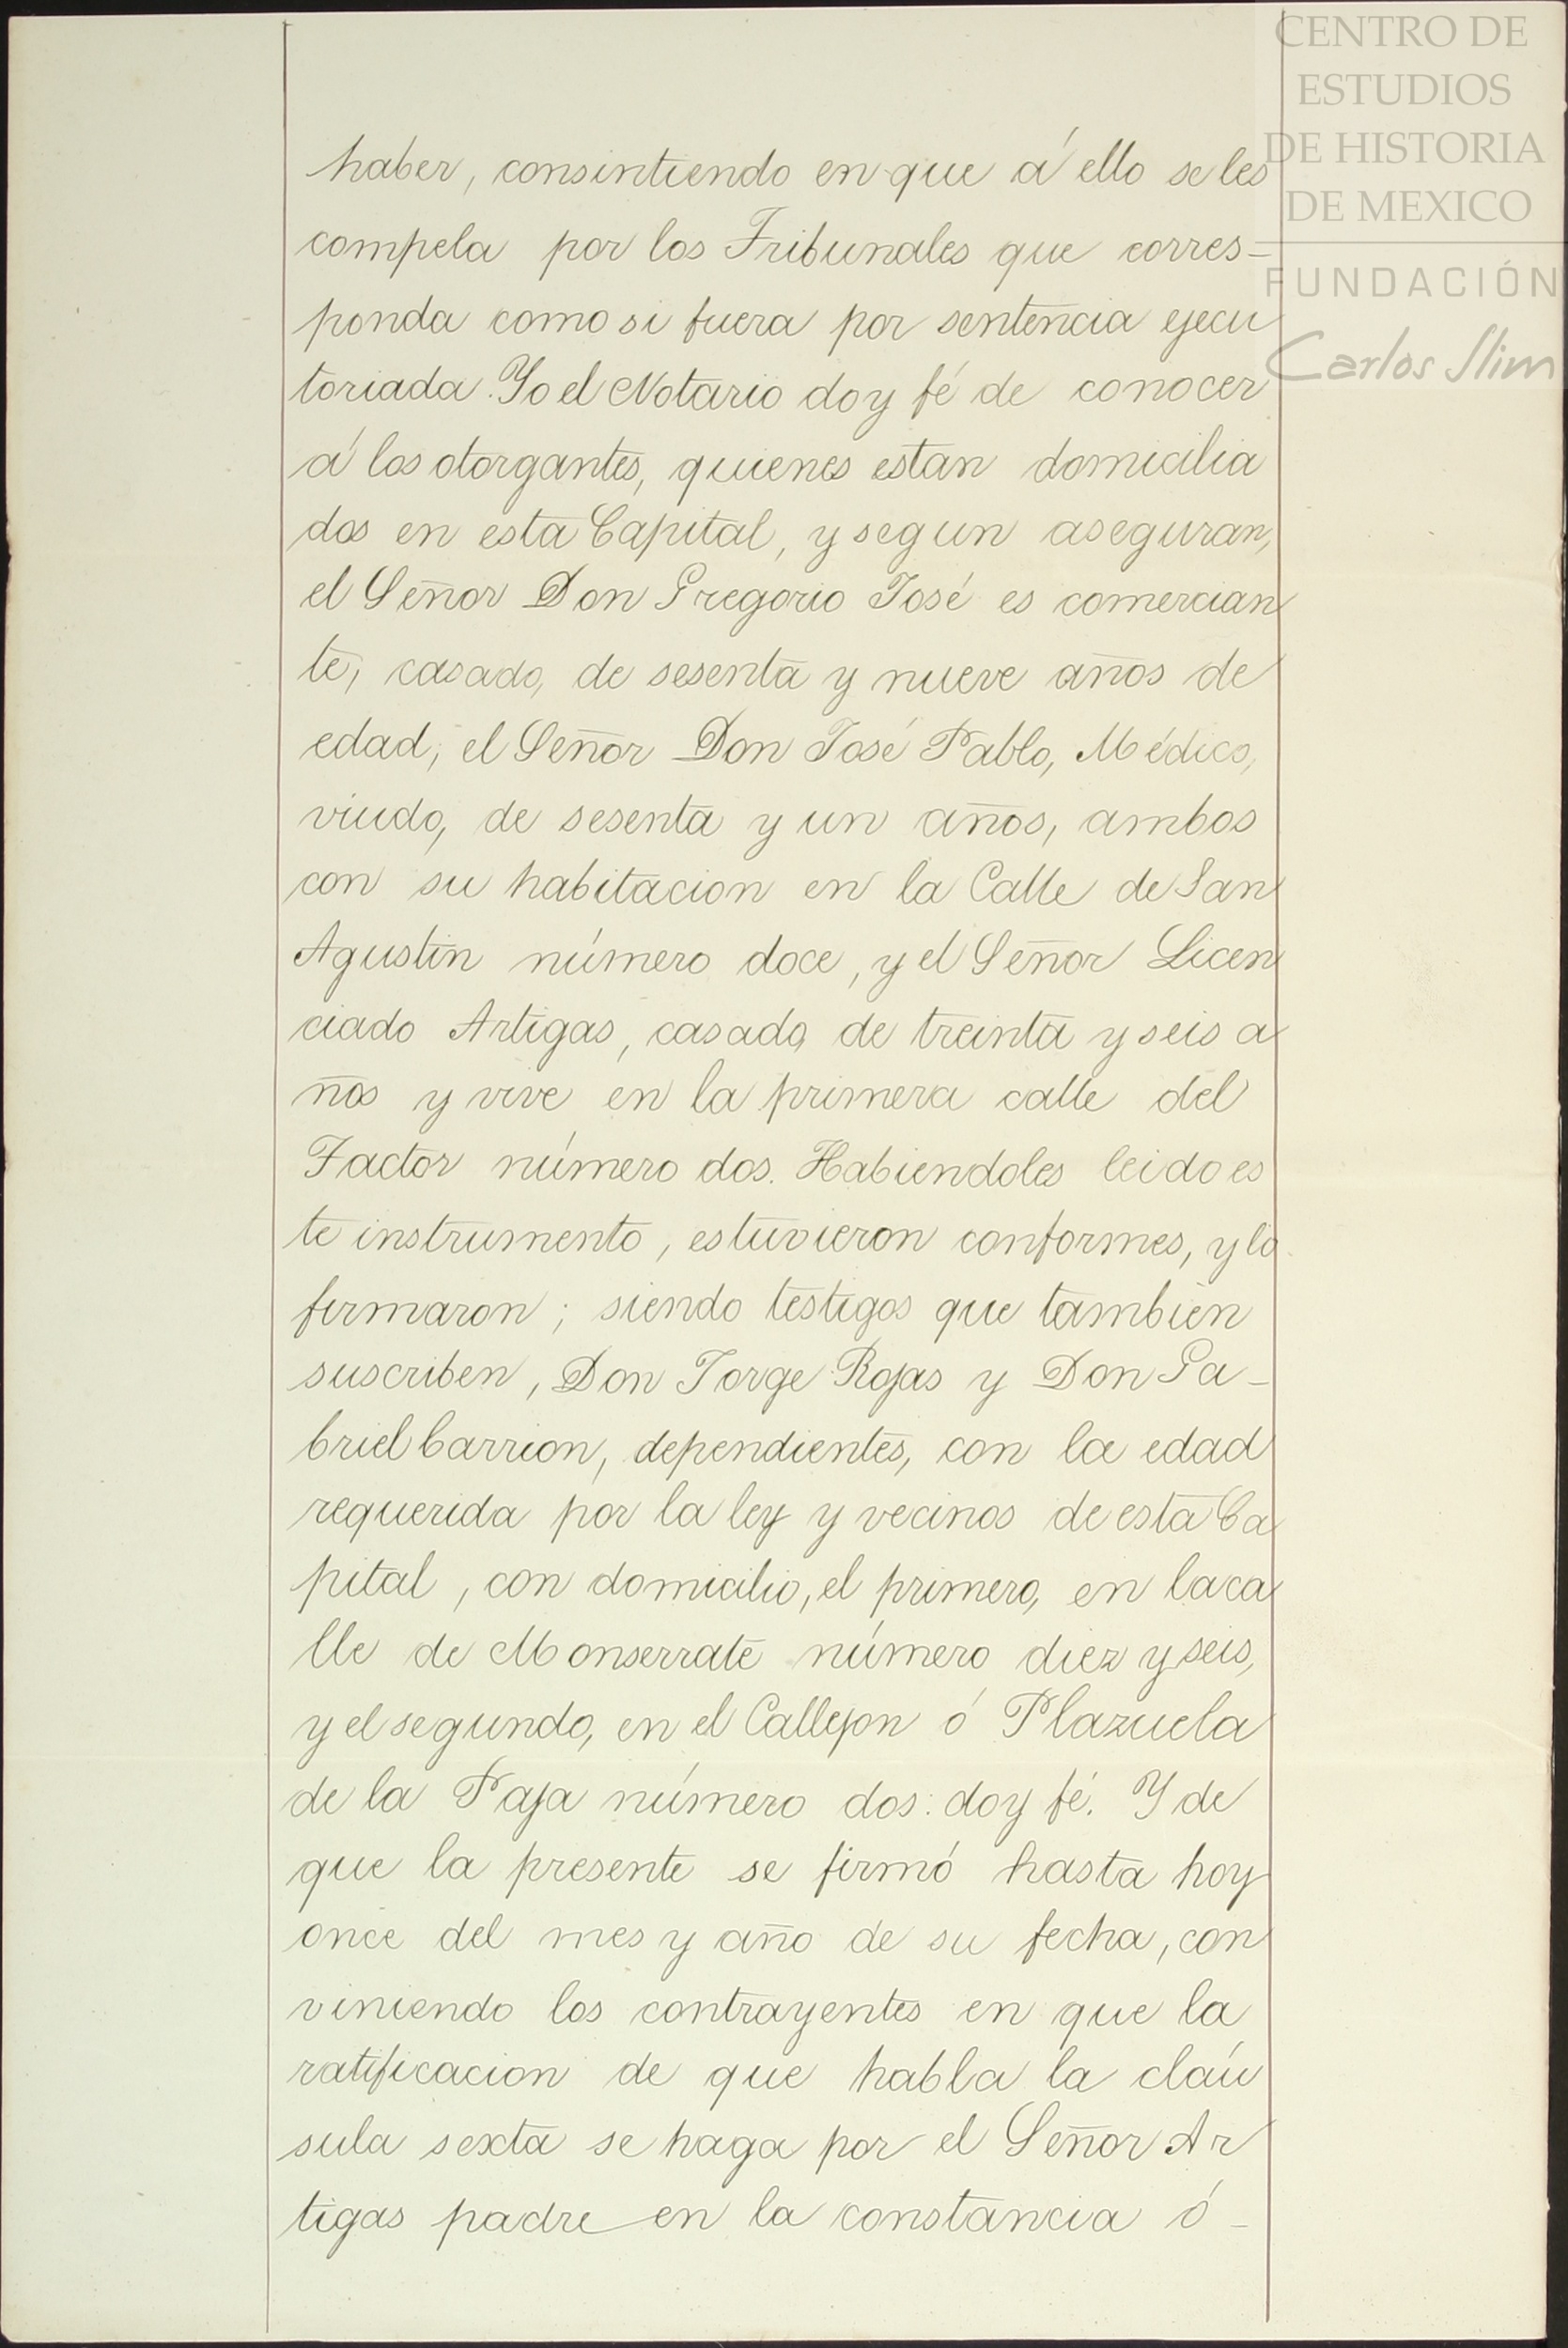 CENTRO DE
ESTUDIOS
DE HISTORIA
DE MEXICO
FUNDACIÓN
Carlos Slim
haber, consintiendo en que á ello se les
compela por los Tribunales que corres-
ponda como si fuera por sentencia ejecu
toriada. Yo el Notario doy fé de conocer
á los otorgantes, quienes estan domicilia
dos en esta Capital, y segun aseguran,
el Señor Don Gregorio José es comercian
te, casado, de sesenta y nueve años de
edad, el Señor Don José Pablo, Médico,
viudo, de sesenta y un años, ambos
con su habitacion en la Calle de San
Agustin número doce, y el Señor Licen
ciado Artigas, casado, de treinta y seis a
ños y vive en la primera calle del
Factor número dos. Habiendoles leido es
te instrumento, estuvieron conformes, y lo
firmaron; siendo testigos que tambien
suscriben, Don Jorge Rojas y Don Ga-
briel Carrion, dependientes, con la edad
requerida por la ley y vecinos de esta Ca
pital, con domicilio, el primero, en la ca
lle de Monserrate número diez y seis,
y el segundo, en el Callejon ó Plazuela
de la Paja número dos: doy fé. Y de
que la presente se firmó hasta hoy
once del mes y año de su fecha, con
viniendo los contrayentes en que la
ratificacion de que habla la claú
sula sexta se haga por el Señor Ar
tigas padre en la constancia ó-